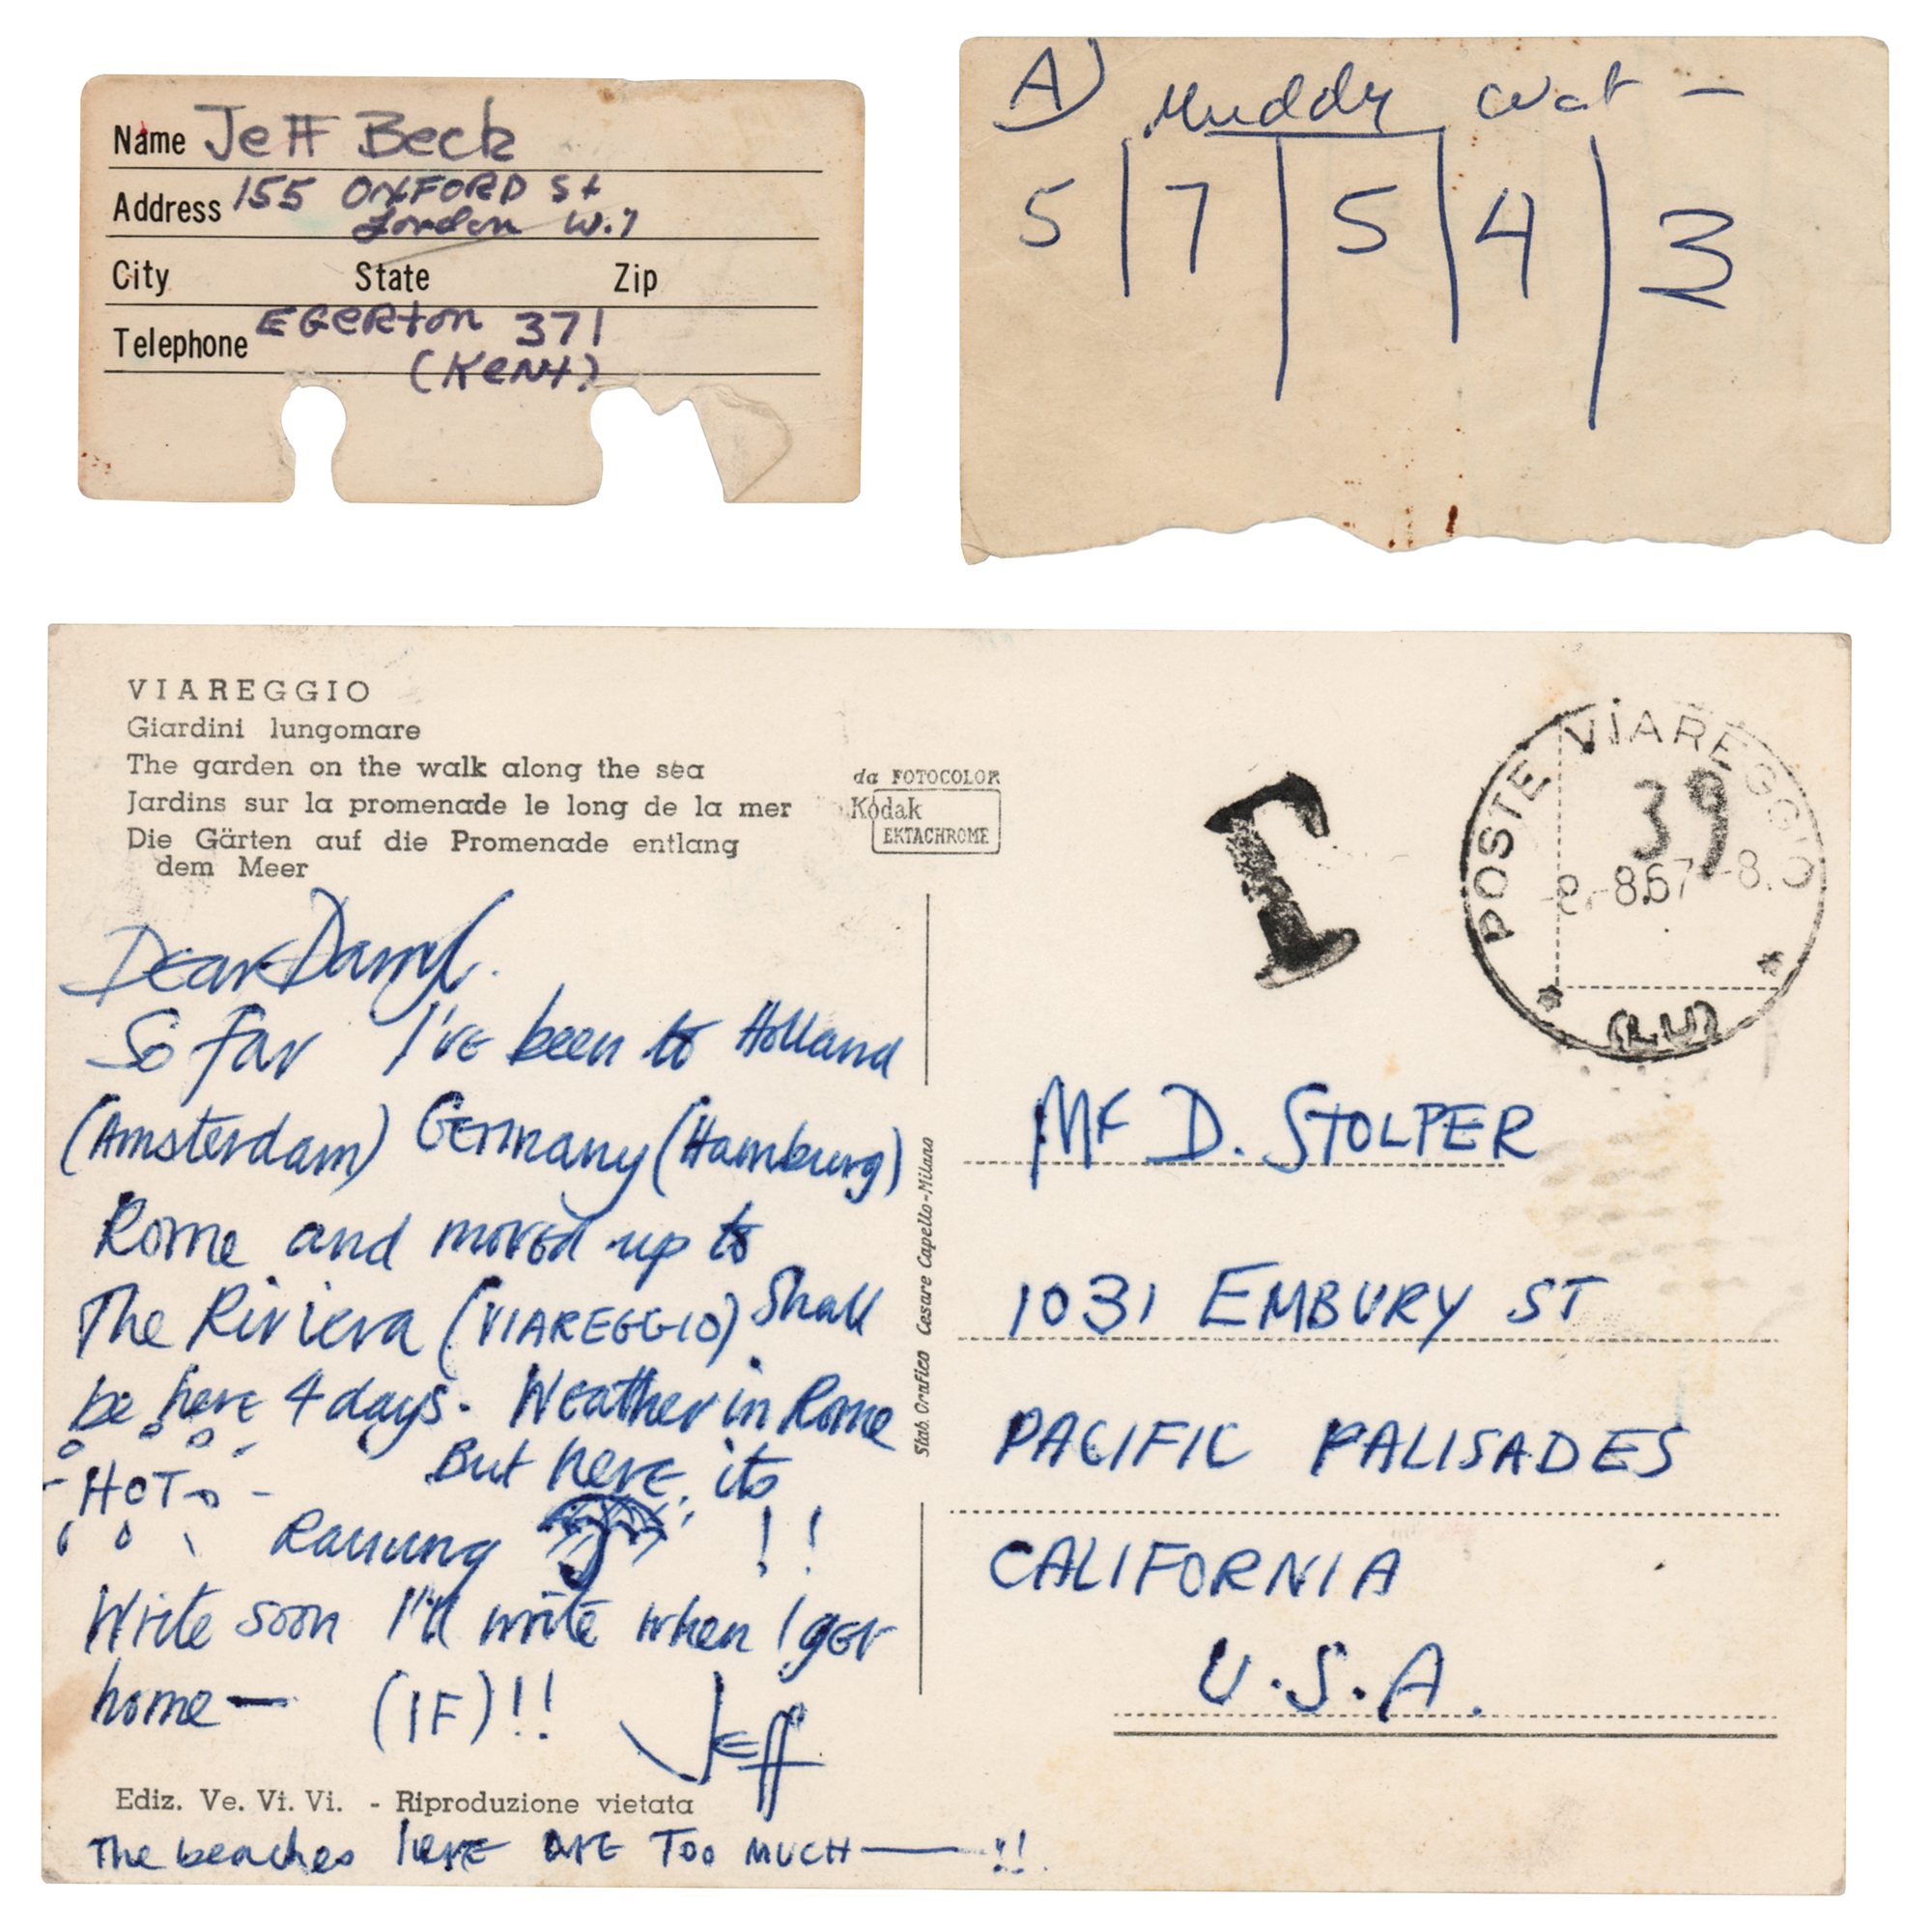 Name Jeff Beck
Address 155 OXFORD St
London W.1
City State Zip
Telephone EGERton 371
(KENt)
A) Muddy Wat —
5 | 7 | 5 | 4 | 3
VIAREGGIO
Giardini lungomare
The garden on the walk along the sea
Jardins sur la promenade le long de la mer
Die Gärten auf die Promenade entlang
dem Meer
da FOTOCOLOR
Kodak
EKTACHROME
T
POSTE VIAREGGIO
39
-8.67-8.
(LU)
Dear Darryl.
So far I've been to Holland
(Amsterdam) Germany (Hamburg)
Rome and moved up to
The Riviera (VIAREGGIO) Shall
be here 4 days. Weather in Rome
HOT But here, its
Raining !!
Write soon I'll write when I get
home — (IF)!! Jeff
Ediz. Ve. Vi. Vi. - Riproduzione vietata
The beaches here are TOO MUCH — !!
Stab. Grafico Cesare Capello-Milano
Mr D. STOLPER
1031 EMBURY ST
PACIFIC PALISADES
CALIFORNIA
U.S.A.